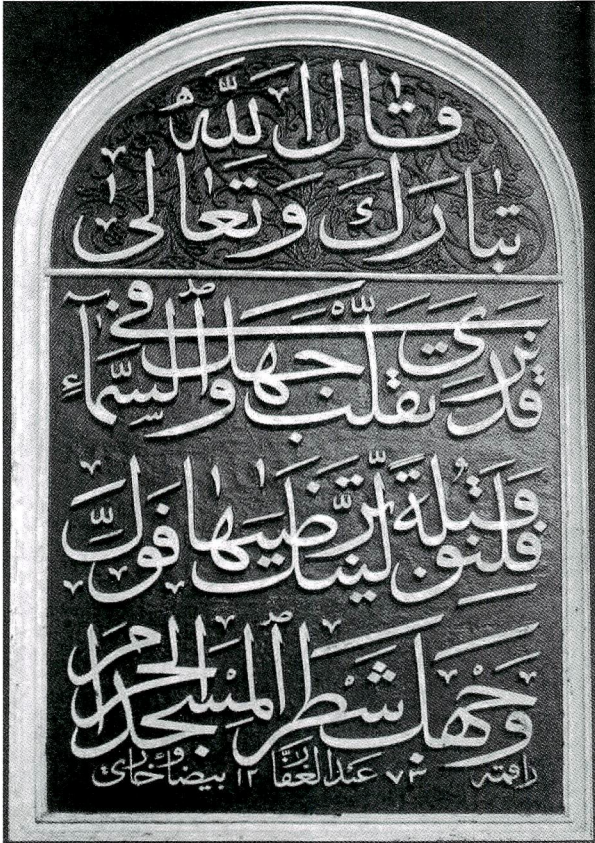 قَالَ اللَّهُ
تَبَارَكَ وَتَعَالىٰ
قَدْ نَرىٰ تَقَلُّبَ وَجْهِكَ فِي السَّمَآءِ
فَلَنُوَلِّيَنَّكَ قِبْلَةً تَرْضَيٰهَا فَوَلِّ
وَجْهَكَ شَطْرَ الْمَسْجِدِ الْحَرَامِ
٧٣ عبدالغفار ١٢